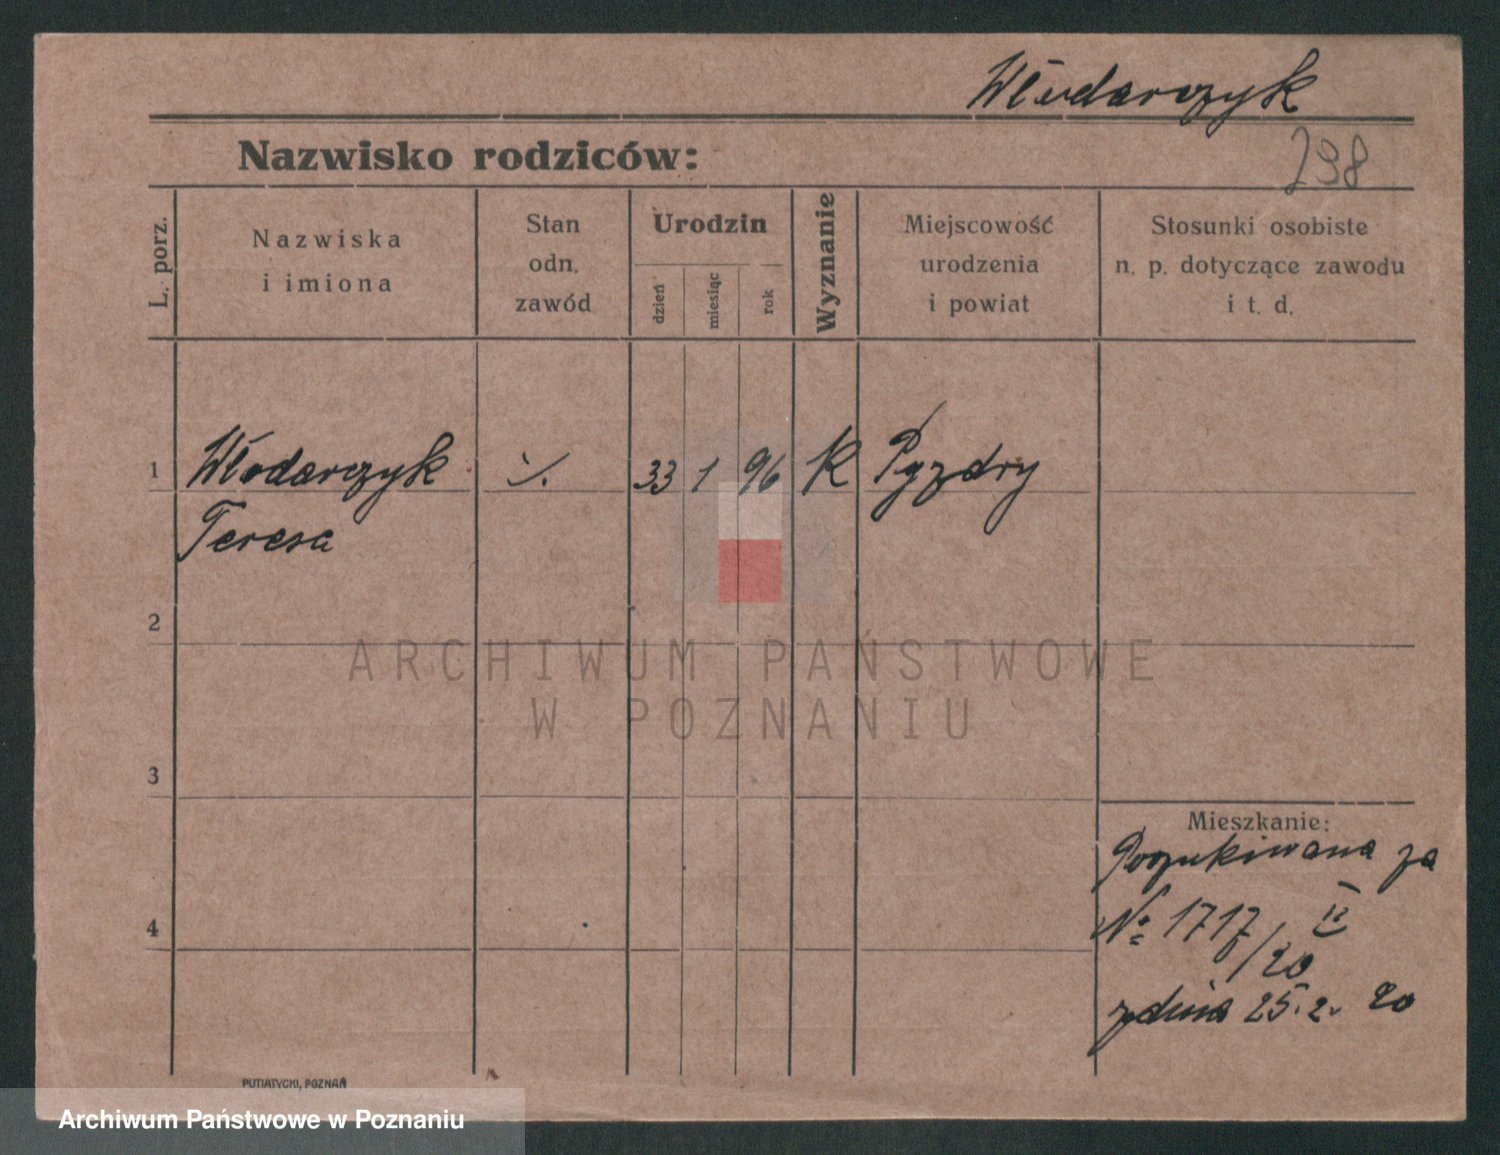 Włodarczyk
Nazwisko rodziców:
298
L. porz.
Nazwiska
i imiona
Stan
odn.
zawód
Urodzin
dzień
miesiąc
rok
Wyznanie
Miejscowość
urodzenia
i powiat
Stosunki osobiste
n. p. dotyczące zawodu
i t. d.
1
Włodarczyk
Teresa
./.
33
1
96
K
Pyzdry
2
ARCHIWUM PAŃSTWOWE
W POZNANIU
3
4
Mieszkanie:
Poszukiwana za
№ 1717/20
z dnia 25.2. 20
PUTIATYCKI, POZNAŃ
Archiwum Państwowe w Poznaniu